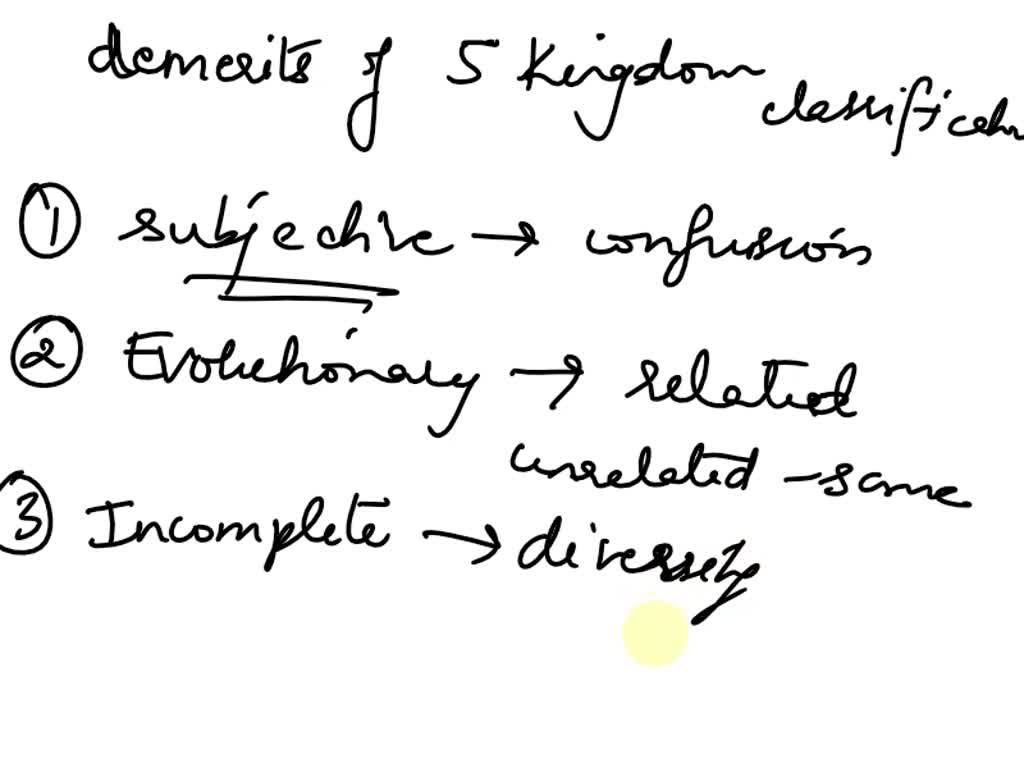 demerits of 5 Kingdom classification
① subjective → confusion
② Evolutionary → related
unrelated - same
③ Incomplete → diversity